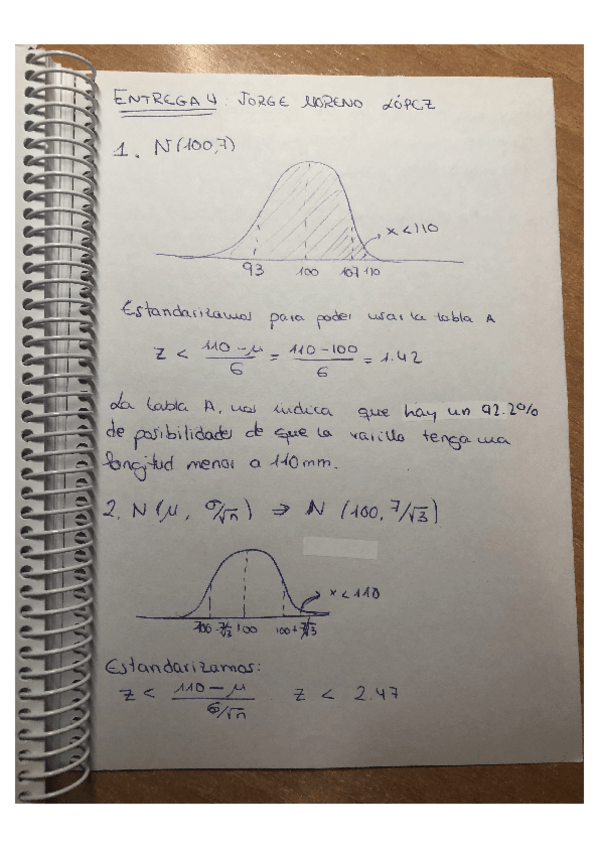 ENTREGA 4: JORGE MORENO LÓPEZ
1. N(100,7)
x<110
93 100 107 110
Estandarizamos para poder usar la tabla A
Z < (110-μ)/σ = (110-100)/6 = 1.42
La tabla A, nos indica que hay un 92.2%
de posibilidades de que la varilla tenga una
longitud menor a 110mm.
2. N(μ, σ/√n) ⇒ N (100, 7/√3)
x<110
100-7/√3 100 100+7/√3
Estandarizamos:
Z < (110-μ)/(σ/√n) Z < 2.47